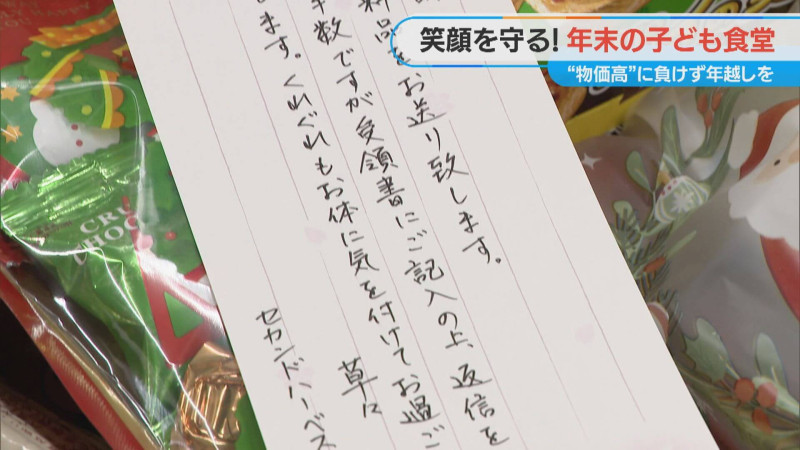 笑顔を守る!年末の子ども食堂
“物価高”に負けず年越しを
料品をお送り致します。
手数ですが受領書にご記入の上、返信を
ます。くれぐれもお体に気を付けてお過ご
草々
セカンドハーベス
CRU
CHOC